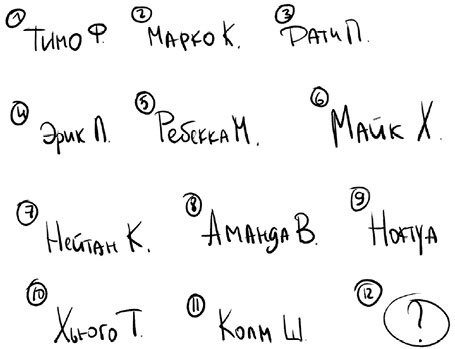 ① Тимо Ф. ② Марко К. ③ Рати П.
④ Эрик Л. ⑤ Ребекка М. ⑥ Майк Х.
⑦ Нейтан К. ⑧ Аманда В. ⑨ Ноктуа
⑩ Хьюго Т. ⑪ Колм Ш. ⑫ ?